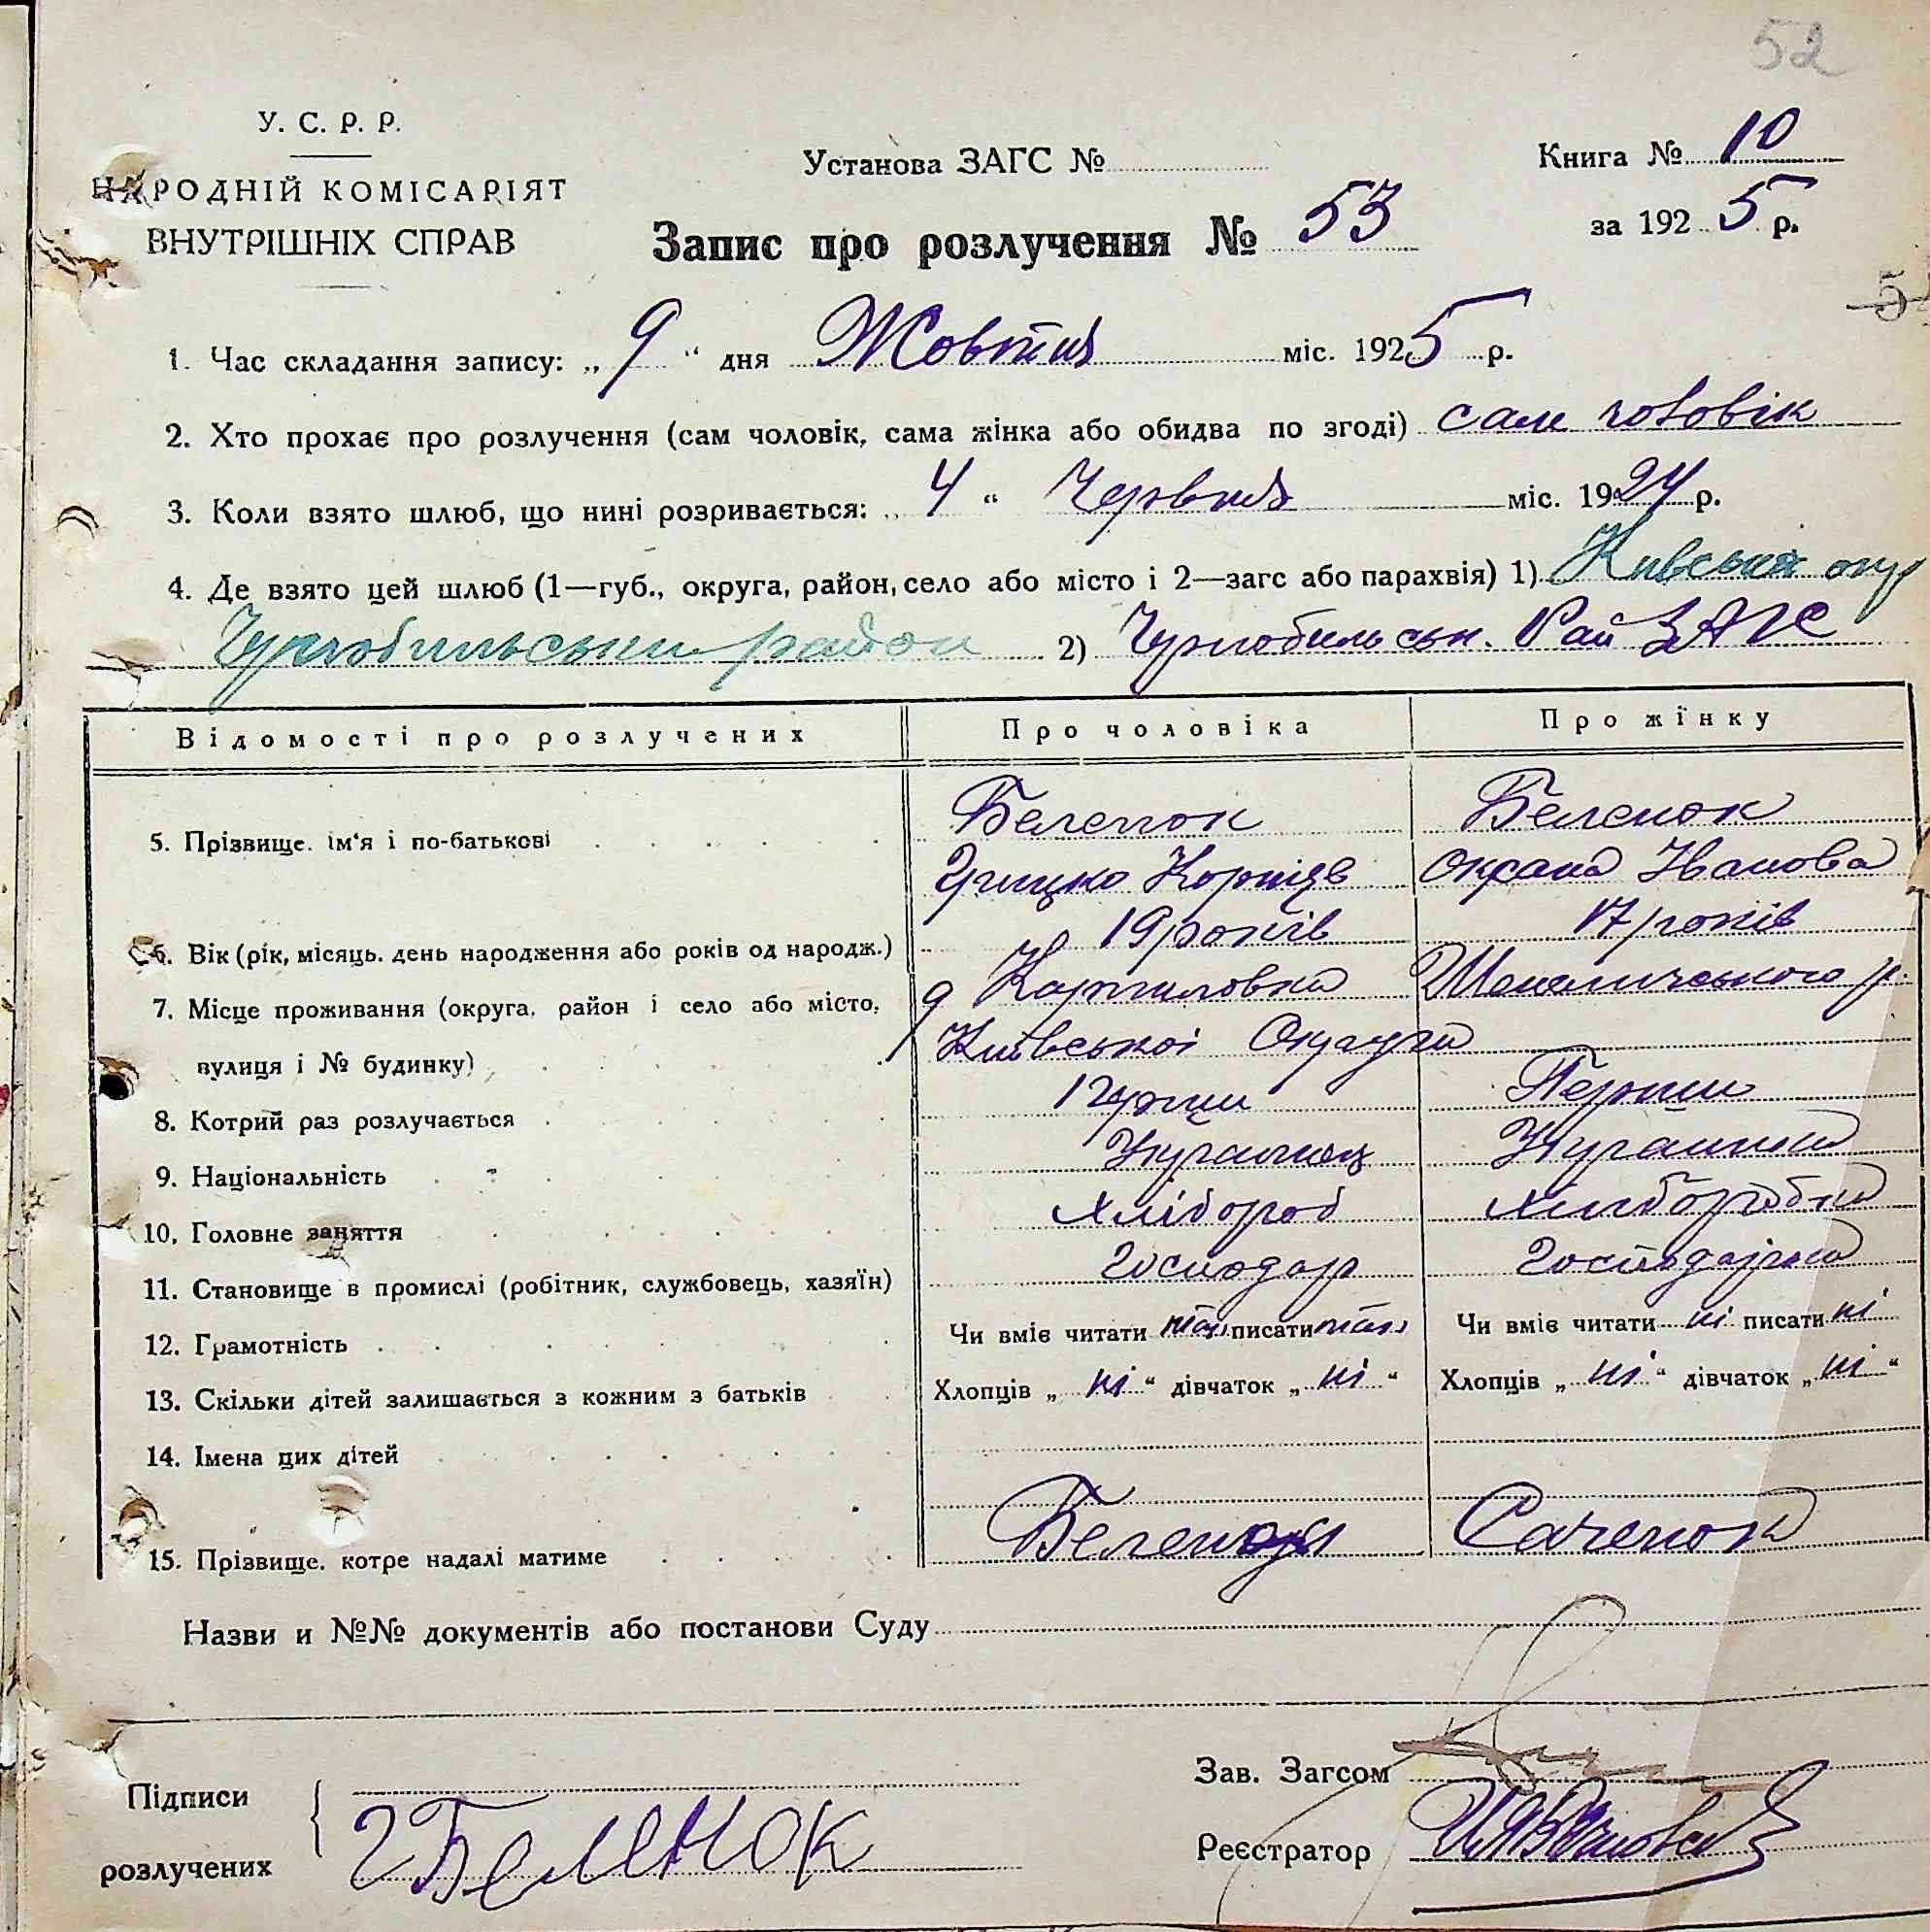 52
У. С. Р. Р.
НАРОДНІЙ КОМІСАРІЯТ
ВНУТРІШНІХ СПРАВ
Установа ЗАГС №
Книга № 10
за 1925 р.
Запис про розлучення № 53
5
1. Час складання запису: „ 9 “ дня Жовтня міс. 1925 р.
2. Хто прохає про розлучення (сам чоловік, сама жінка або обидва по згоді) сам чоловік
3. Коли взято шлюб, що нині розривається: „ 4 “ Червня міс. 1924 р.
4. Де взято цей шлюб (1—губ., округа, район, село або місто і 2—загс або парахвія) 1) Київська окр
Чорнобильський район 2) Чернобильськ. Рай ЗАГС
Відомості про розлучених Про чоловіка Про жінку
5. Прізвище, ім‘я і по-батькові Беленок Беленок
Грицько Корніїв Оксана Іванова
6. Вік (рік, місяць, день народження або років од народж.) 19 років 17 років
7. Місце проживання (округа, район і село або місто, вулиця і № будинку)
Карпиловка Шепеличського р.
Київської Округи
8. Котрий раз розлучається Перши Перши
9. Національність Українец Українка
10. Головне заняття Хлібороб Хліборобка
11. Становище в промислі (робітник, службовець, хазяїн) Господар Господарка
12. Грамотність Чи вміє читати так писати так Чи вміє читати ні писати ні
13. Скільки дітей залишається з кожним з батьків Хлопців „ ні “ дівчаток „ ні “ Хлопців „ ні “ дівчаток „ ні “
14. Імена цих дітей
15. Прізвище, котре надалі матиме Беленок Саченок
Назви и №№ документів або постанови Суду
Підписи
розлучених
Г Беленок
Зав. Загсом
Реєстратор